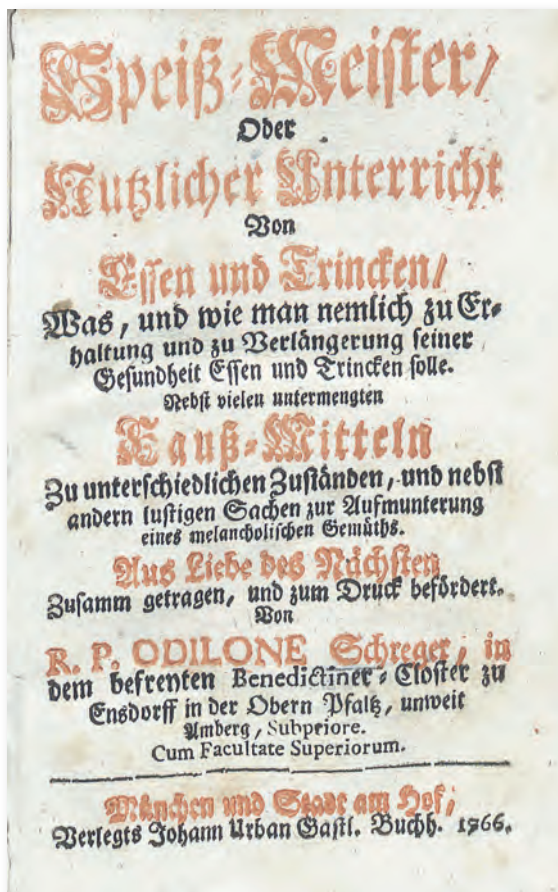 Speiß-Meister/
Oder
Nutzlicher Unterricht
Von
Essen und Trincken/
Was, und wie man nemlich zu Er-
haltung und zu Verlängerung seiner
Gesundheit Essen und Trincken solle.
Nebst vielen untermengten
Hauß-Mitteln
Zu unterschiedlichen Zuständen, und nebst
andern lustigen Sachen zur Aufmunterung
eines melancholischen Gemüths.
Aus Liebe des Nächsten
Zusamm getragen, und zum Druck befördert.
Von
R. P. ODILONE Schreger, in
dem befreyten Benedictiner-Closter zu
Ensdorff in der Obern Pfaltz, unweit
Amberg, Subpriore.
Cum Facultate Superiorum.
München und Stadt am Hof,
Verlegts Johann Urban Gastl. Buchh. 1766.